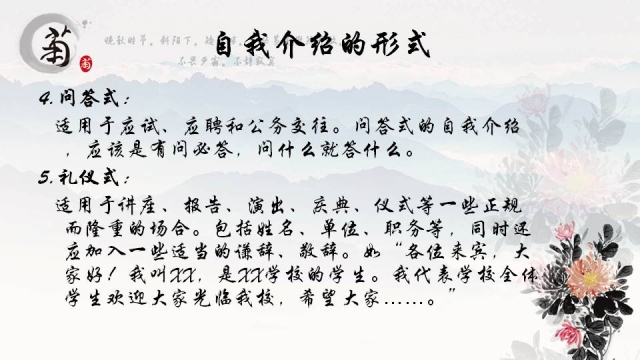 菊
菊
自我介绍的形式
4.问答式：
适用于应试、应聘和公务交往。问答式的自我介绍
，应该是有问必答，问什么就答什么。
5.礼仪式：
适用于讲座、报告、演出、庆典、仪式等一些正规
而隆重的场合。包括姓名、单位、职务等，同时还
应加入一些适当的谦辞、敬辞。如“各位来宾，大
家好！我叫XX，是XX学校的学生。我代表学校全体
学生欢迎大家光临我校，希望大家……。”